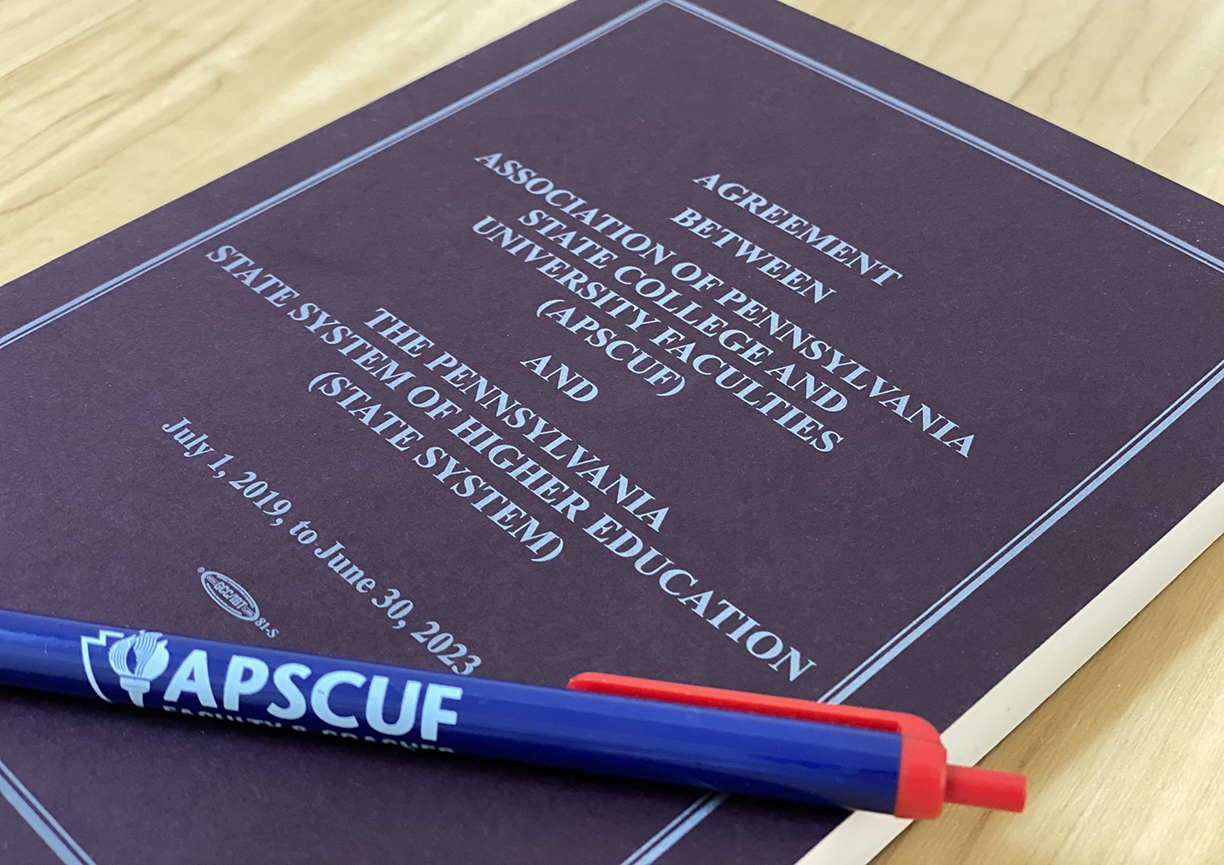 AGREEMENT
BETWEEN
ASSOCIATION OF PENNSYLVANIA
STATE COLLEGE AND
UNIVERSITY FACULTIES
(APSCUF)
AND
THE PENNSYLVANIA
STATE SYSTEM OF HIGHER EDUCATION
(STATE SYSTEM)
July 1, 2019, to June 30, 2023
GCC/IBT
81-S
APSCUF
FACULTY & COACHES